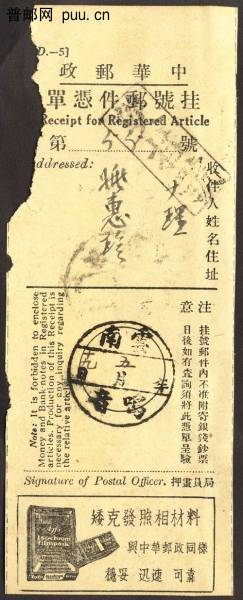 普邮网 puu.cn
D.—5]
中華郵政
掛號郵件憑單
Receipt for Registered Article
第 55 號
Addressed:
收件人姓名住址
大理
惠珍
注意
掛號郵件內不准附寄銀錢鈔票
日後如有查詢須將此憑單呈驗
Note: It is forbidden to enclose
Money and Bank-notes in Registered
articles. Production of this Receipt is
necessary for any inquiry regarding
the relative article
雲南
五月
鳴音
Signature of Postal Officer. 局員畫押
Isochrom
Filmpack
矮克發照相材料
與中華郵政同樣
穩妥 迅速 可靠